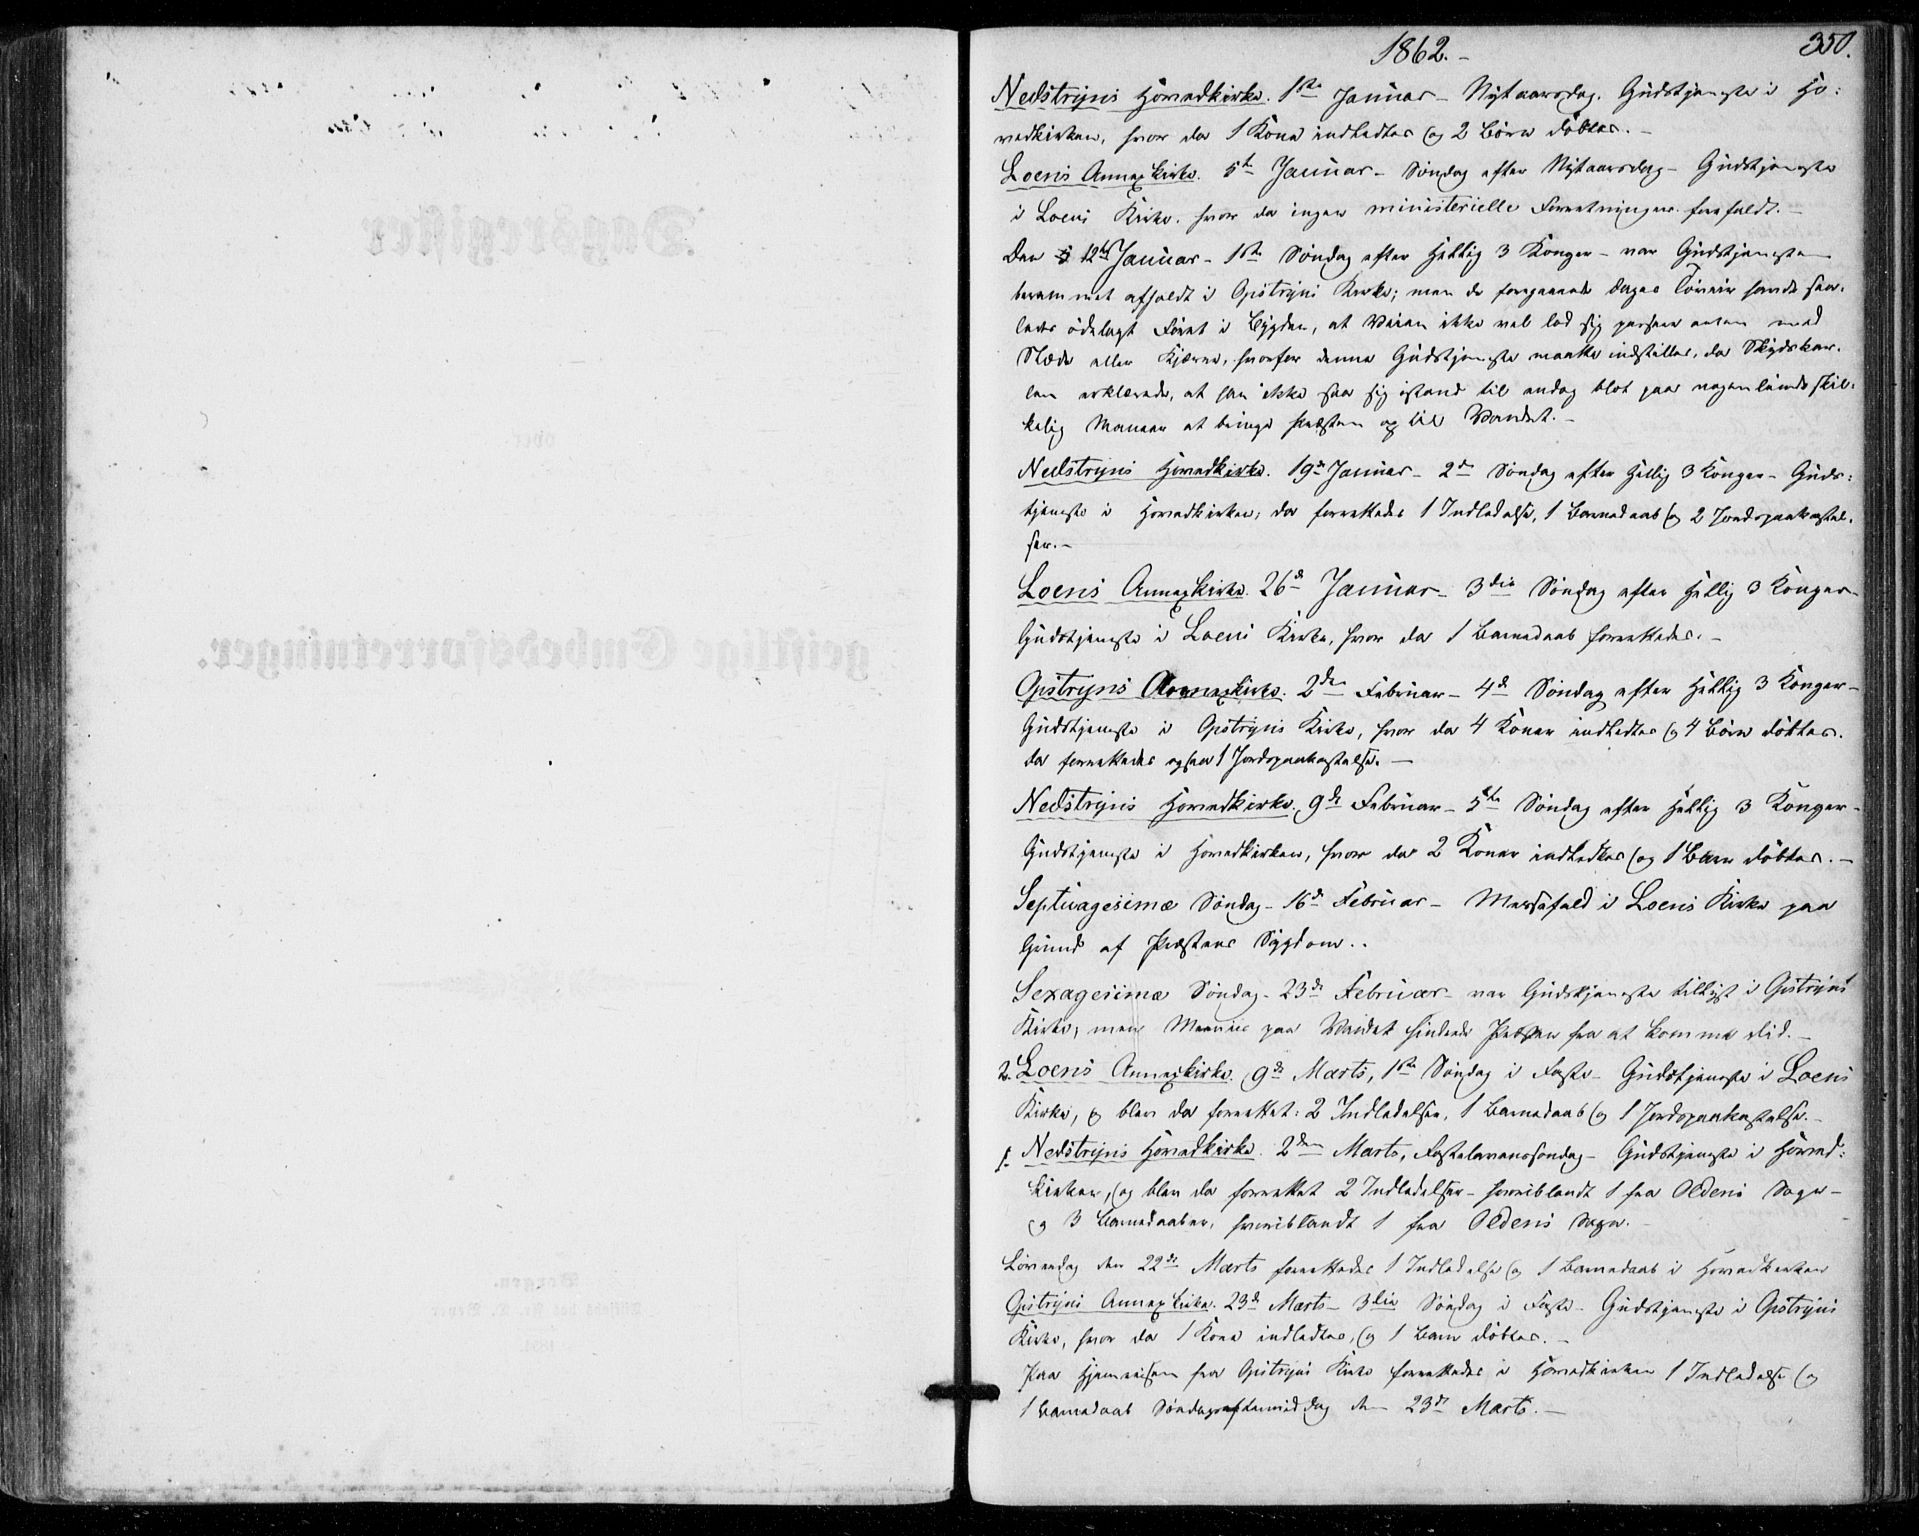 1862.-
350.
Nedstryns Hovedkirke. 1ste Januar - Nytaarsdag. Gudstjeneste i Ho:
vedkirken, hvor da 1 Kone indledtes og 2 Børn döbtes. -
Loens Annexkirke. 5te Januar - Søndag efter Nytaarsdag - Gudstjeneste
i Loens Kirke, hvor da ingen ministerielle Forretninger forefaldt. -
Den 12te Januar - 1ste Søndag efter Hellig 3 Konger - var Gudstjenesten
berammet afholdt i Opstryns Kirke; men de foregaaende Dages Tøveir havde saa:
ledes ödelagt Føret i Bygden, at Veien ikke vel lod sig passere enten med
Slæde eller Kjærre, hvorfor denne Gudstjeneste maatte indstilles, da Skydskar:
len erklærede, at han ikke saa sig istand til endog blot paa nogenlunde skik:
kelig Maneer at bringe Præsten op til Vandet. -
Nedstryns Hovedkirke. 19de Januar - 2den Søndag efter Hellig 3 Konger - Guds:
tjeneste i Hovedkirken; da forrettedes 1 Indledelse, 1 Barnedaab og 2 Jordspaakastel:
ser. -
Loens Annexkirke. 26de Januar - 3die Søndag efter Hellig 3 Konger -
Gudstjeneste i Loens Kirke, hvor da 1 Barnedaab forrettedes. -
Opstryns Annexkirke. 2den Februar - 4de Søndag efter Hellig 3 Konger -
Gudstjeneste i Opstryns Kirke, hvor da 4 Koner indledtes og 4 Børn döbtes.
Da forrettedes ogsaa 1 Jordspaakastelse. -
Nedstryns Hovedkirke. 9de Februar - 5te Søndag efter Hellig 3 Konger -
Gudstjeneste i Hovedkirken, hvor da 2 Koner indledtes og 1 Barn döbtes. -
Septuagesimæ Søndag - 16de Februar - Messefald i Loens Kirke paa
Grund af Præstens Sygdom. -
Sexagesimæ Søndag - 23de Februar - var Gudstjeneste tillyst i Opstryns
Kirke; men Meeniis paa Vandet hindrede Præsten fra at komme did. -
2. Loens Annexkirke. 9de Marts, 1ste Søndag i Faste - Gudstjeneste i Loens
Kirke, og blev da forrettet: 2 Indledelser, 1 Barnedaab og 1 Jordspaakastelse. -
1. Nedstryns Hovedkirke. 2den Marts, Fastelavenssøndag - Gudstjeneste i Hoved:
kirken, og blev da forrettet 2 Indledelser - hvoriblandt 1 fra Oldens Sogn -
og 3 Barnedaaber, hvoriblandt 1 fra Oldens Sogn. -
Løverdag den 22de Marts forrettedes 1 Indledelse og 1 Barnedaab i Hovedkirken
Opstryns Annexkirke. 23de Marts - 3die Søndag i Faste - Gudstjeneste i Opstryns
Kirke, hvor da 1 Kone indledtes, og 1 Barn döbtes. -
Paa Hjemreisen fra Opstryns Kirke forrettedes i Hovedkirken 1 Indledelse og
1 Barnedaab Søndagseftermiddag den 23de Marts. -